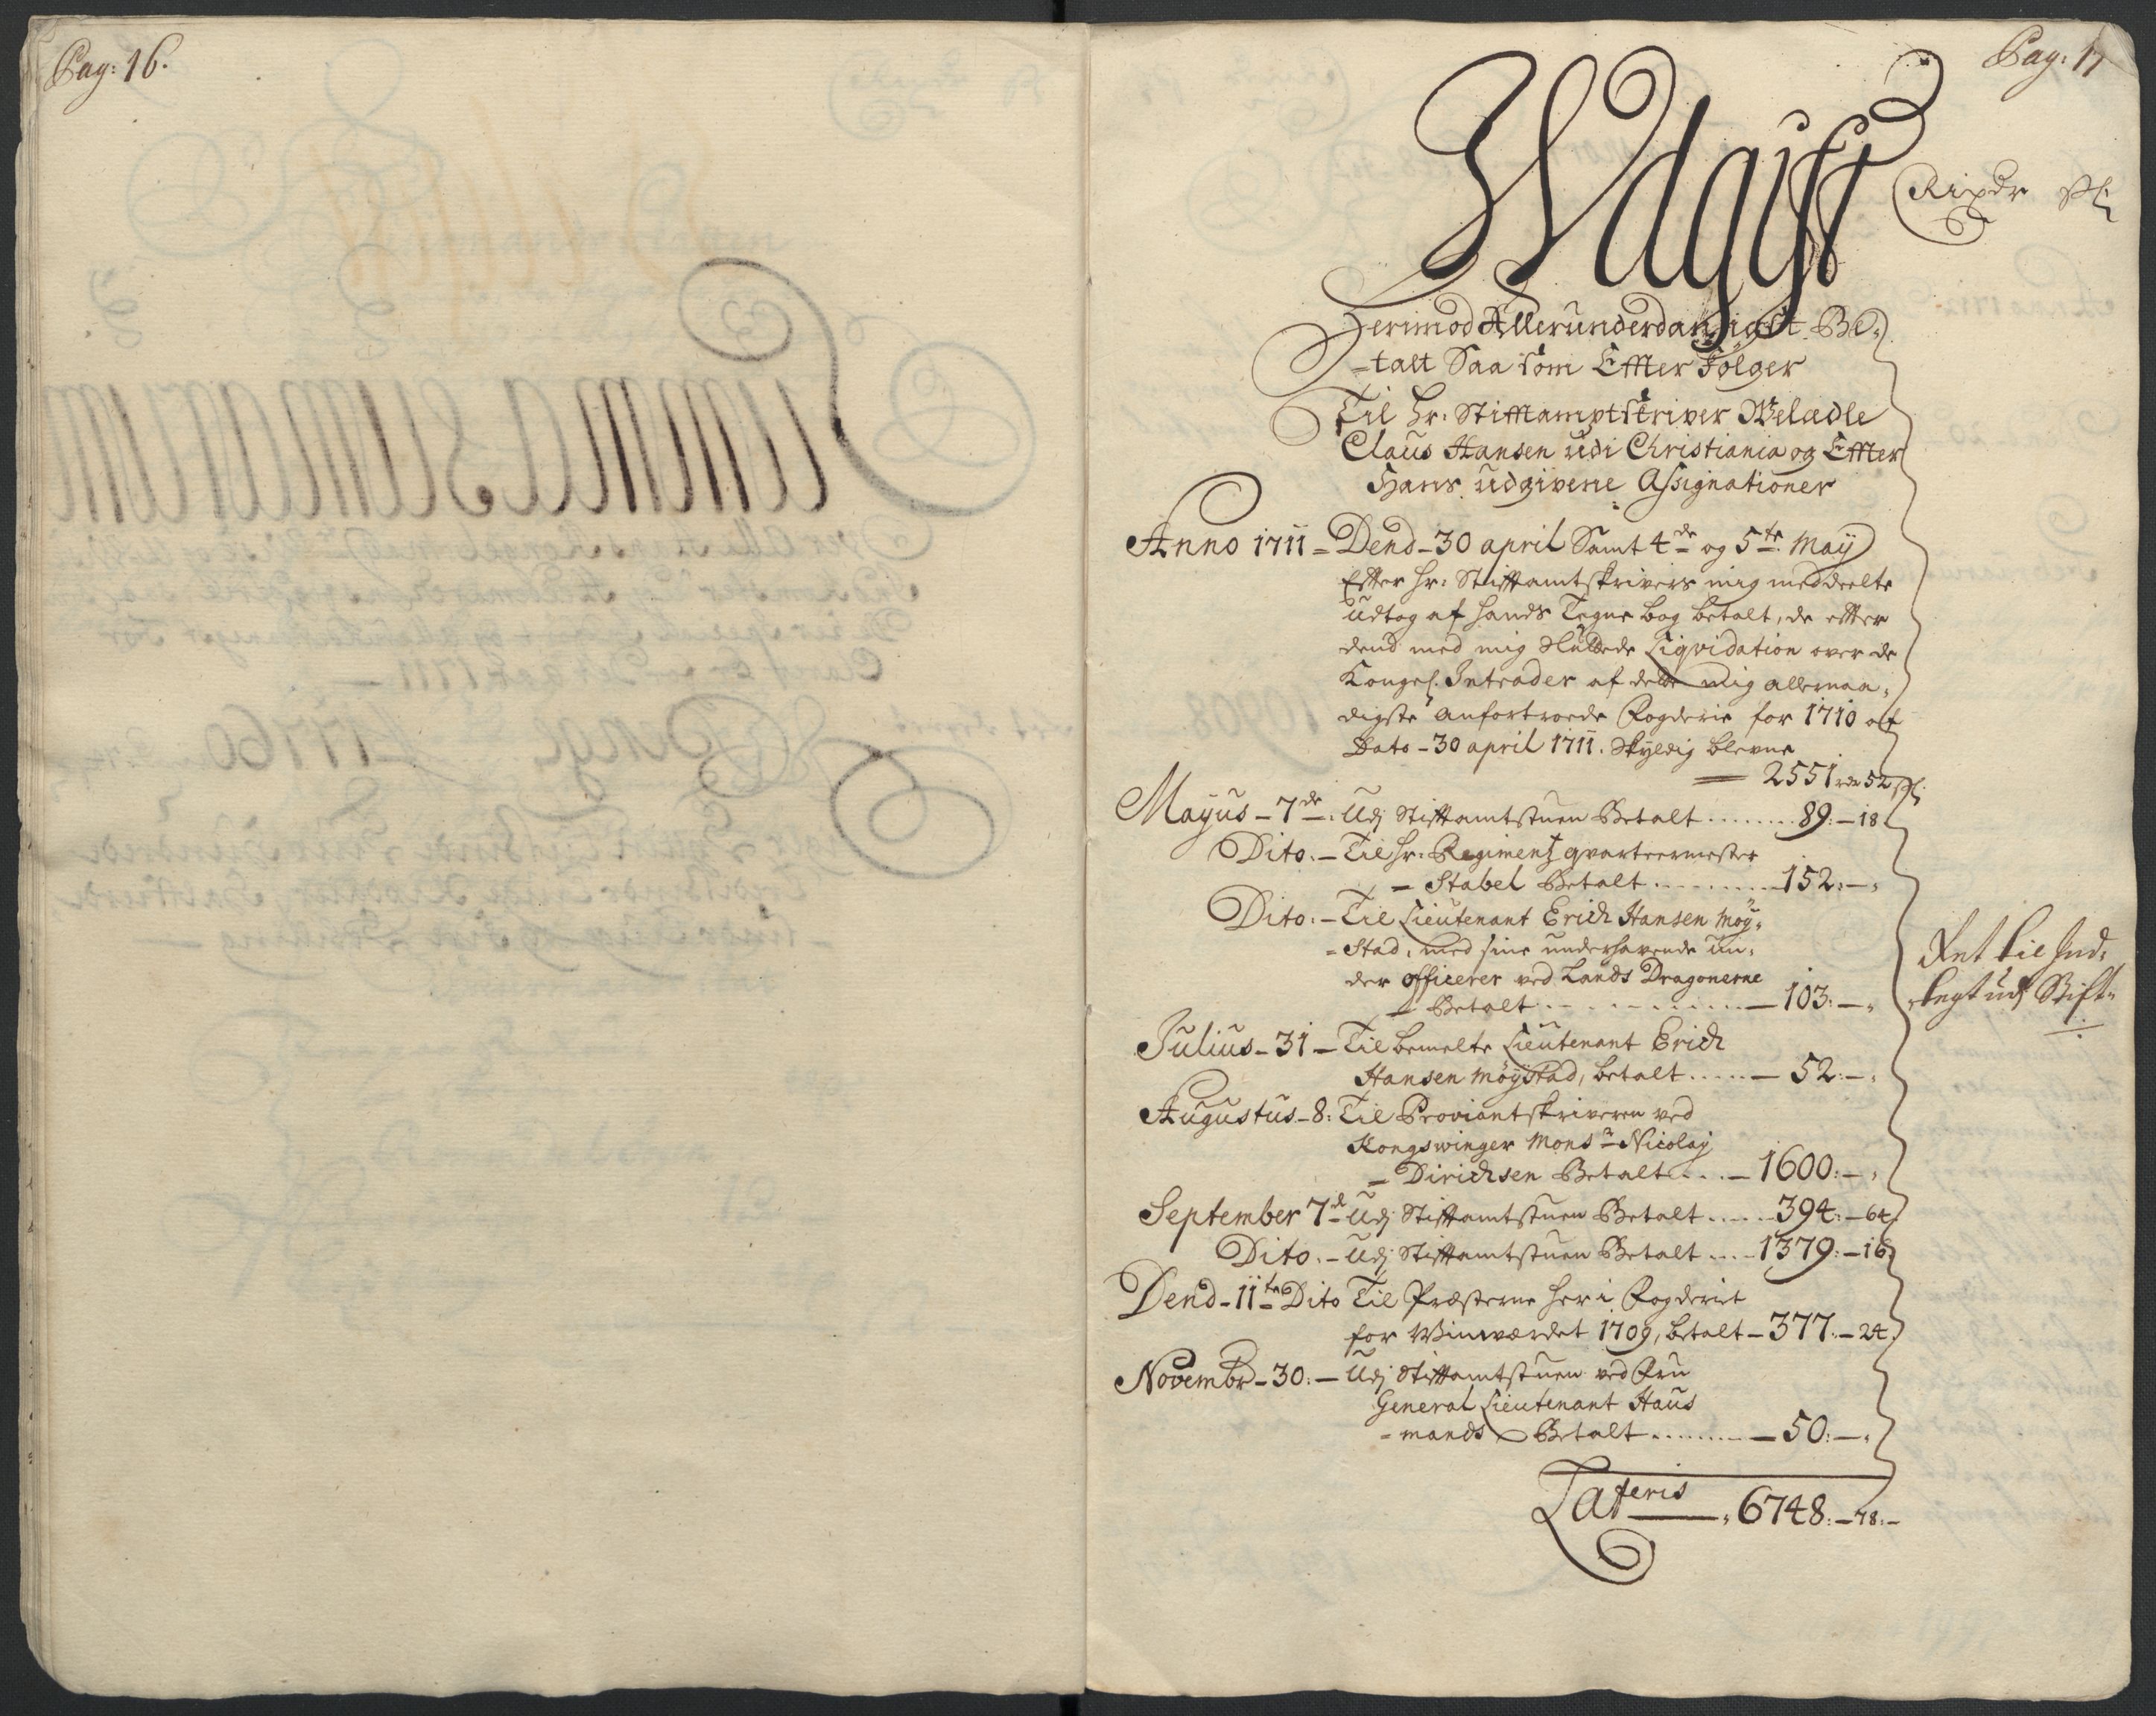 Pag: 16.
Pag: 17
Udgift
Rixdr ß
Derimod Allerunderdanigst Be„
„talt Saa som Effter Følger
Til Hr: Stifftamptskriver Welædle
Claus Hansen udi Christiania og Effter
Hans udgivene Assignationer
Anno 1711 - Dend - 30 april Samt 4de og 5te May
Efter Hr: Stiftamtskrivers mig meddeelte
udtog af hands Tegne bog betalt, de efter
dend med mig Liqvidation over de
Kongel. Intrader af dette mig allernaa„
digste anfortroede Fogderie for 1710 af
Dato - 30 april 1711. Skyldig blevne
— 2551 rdr 52 ß
Mayus - 7de: Udj Stiftamtstuen Betalt ........ 89: - 18
Dito. - Til Hr: Regiment qvarteermester
- Stabel Betalt .......... 152: - „
Dito: - Til Lieutenant Erich Hansen Møy„
„stad, med sine underhavende un„
der officerer ved Lands Dragonerne
- Betalt ............ - 103: - „
Julius - 31 - Til bemelte Lieutenant Erich
Hansen Møystad, betalt ..... - 52: - „
Augustus - 8: Til Proviantskriveren ved
Kongswinger Monsr Nicolay
- Dirichsen Betalt .... - 1600: - „
September 7de Udj Stiftamtstuen Betalt ..... 394: - 64
Dito. - Udj Stiftamtstuen Betalt .... 1379: - 16
Dend - 11te Dito Til Præsterne her i Fogderiet
for Viinwærdet 1709, betalt - 377: - 24
Novembr - 30: - Udj Stiftamtstuen ved Fru
General Lieutenant Haus
„mands Betalt ........ - 50: - „
Lateris — „ 6748: - 78: -
Ret til Ind„